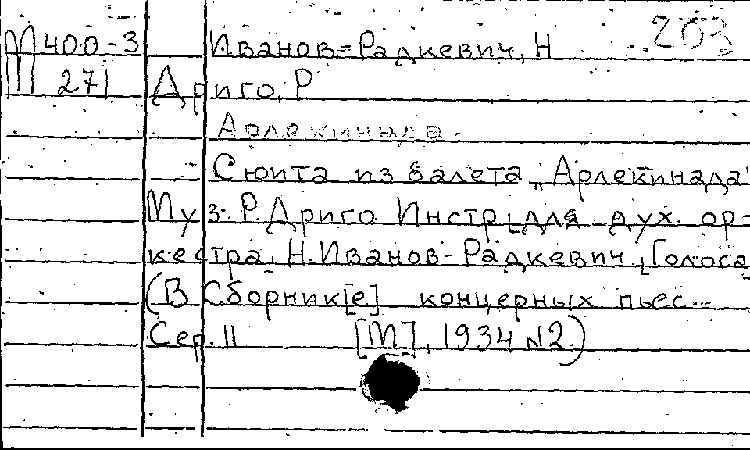 М 400-3 Иванов=Радкевич, Н 203
М 271 Дриго, Р
Арлекинада.
Сюита из балета „Арлекинада"
Муз. Р. Дриго Инстр. для дух. ор-
кестра Н. Иванов-Радкевич, [Голоса
(В Сборник[е] концерных пьес...
Сер. II [М], 1934 №2)